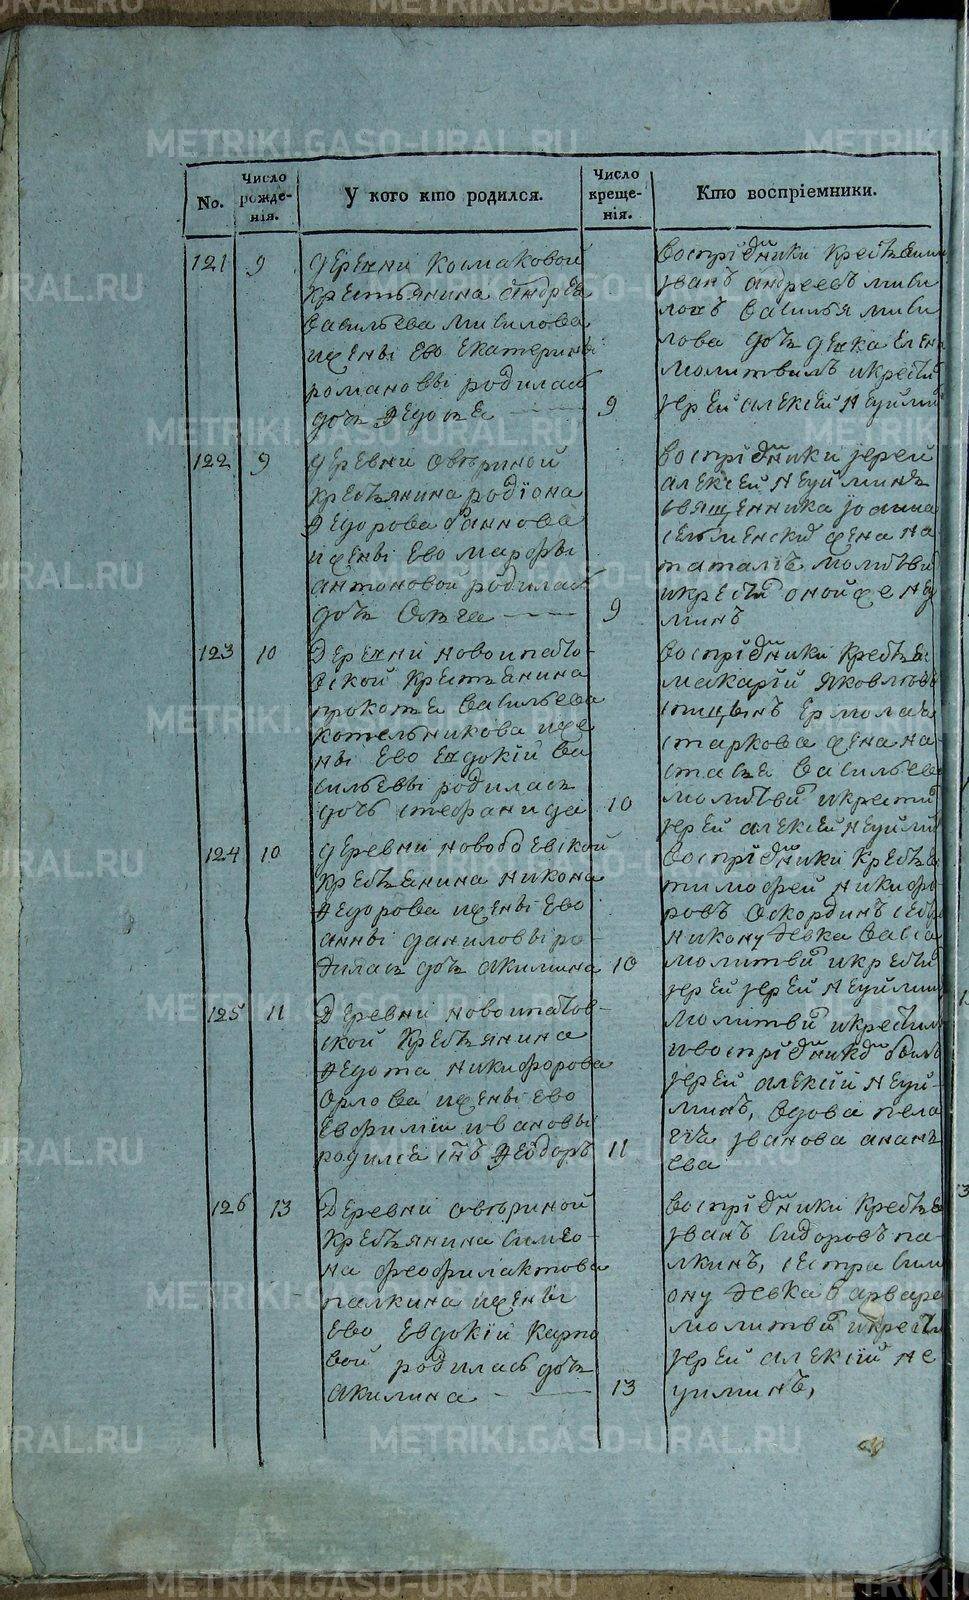 No.
Число рожде-нія.
У кого кто родился.
Число креще-нія.
Кто воспріемники.
121 9
деревни Космаковой
крестьянина Андрея
Васильева
и жены ево Екатерины
романовы родилась
дочь Федосья 9
воспріемники крестьянин
іванъ андреевъ
Василья
дочь девка Елена
молитвилъ и крестил
іерей алексей Неуймин
122 9
деревни Овериной
крестьянина родіона
Федорова
и жены ево марфы
антоновой родилась
дочь Олга 9
воспріемники іерей
алексей Неуйминъ
священника іоанна
жена на
таталія молитви
и крести оной же Неу
минъ
123 10
Деревни новоипатов-
ской крестьянина
прокопья Васильева
котельникова и же
ны ево Евдокіи Ва
сильевы родилась
дочь стефанида 10
воспріемники крестья
макарій яковлевъ
Ермолая
старкова жена на
стасья Васильева
молитви и крести
іерей алексей Неуймин
124 10
деревни
крестьянина никона
Федорова и жены ево
анны даниловы ро
дилась дочь акилина 10
воспріемники крестья
тимофей никифо
ровъ Оскординъ сестра
никону девка Васса
молитви и крести
іерей іерей Неуймин
125 11
Деревни новоипатов-
ской крестьянина
Федота никифорова
орлова и жены ево
Евфиміи ивановы
родился сынъ Феодоръ 11
молитви и крестил
и воспріемником былъ
іерей алексій Неуй-
минъ, вдова пела
гея іванова анань
ева
126 13
Деревни овериной
крестьянина Симео-
на феофилактова
палкина и жены
ево Евдокіи карпо
вой родилась дочь
акилина 13
воспріемники крестья
іванъ Сидоровъ па-
лкинъ, сестра Сим
ону девка варвара
молитви и крести
іерей алексій не
уиминъ,
METRIKI.GASO-URAL.RU